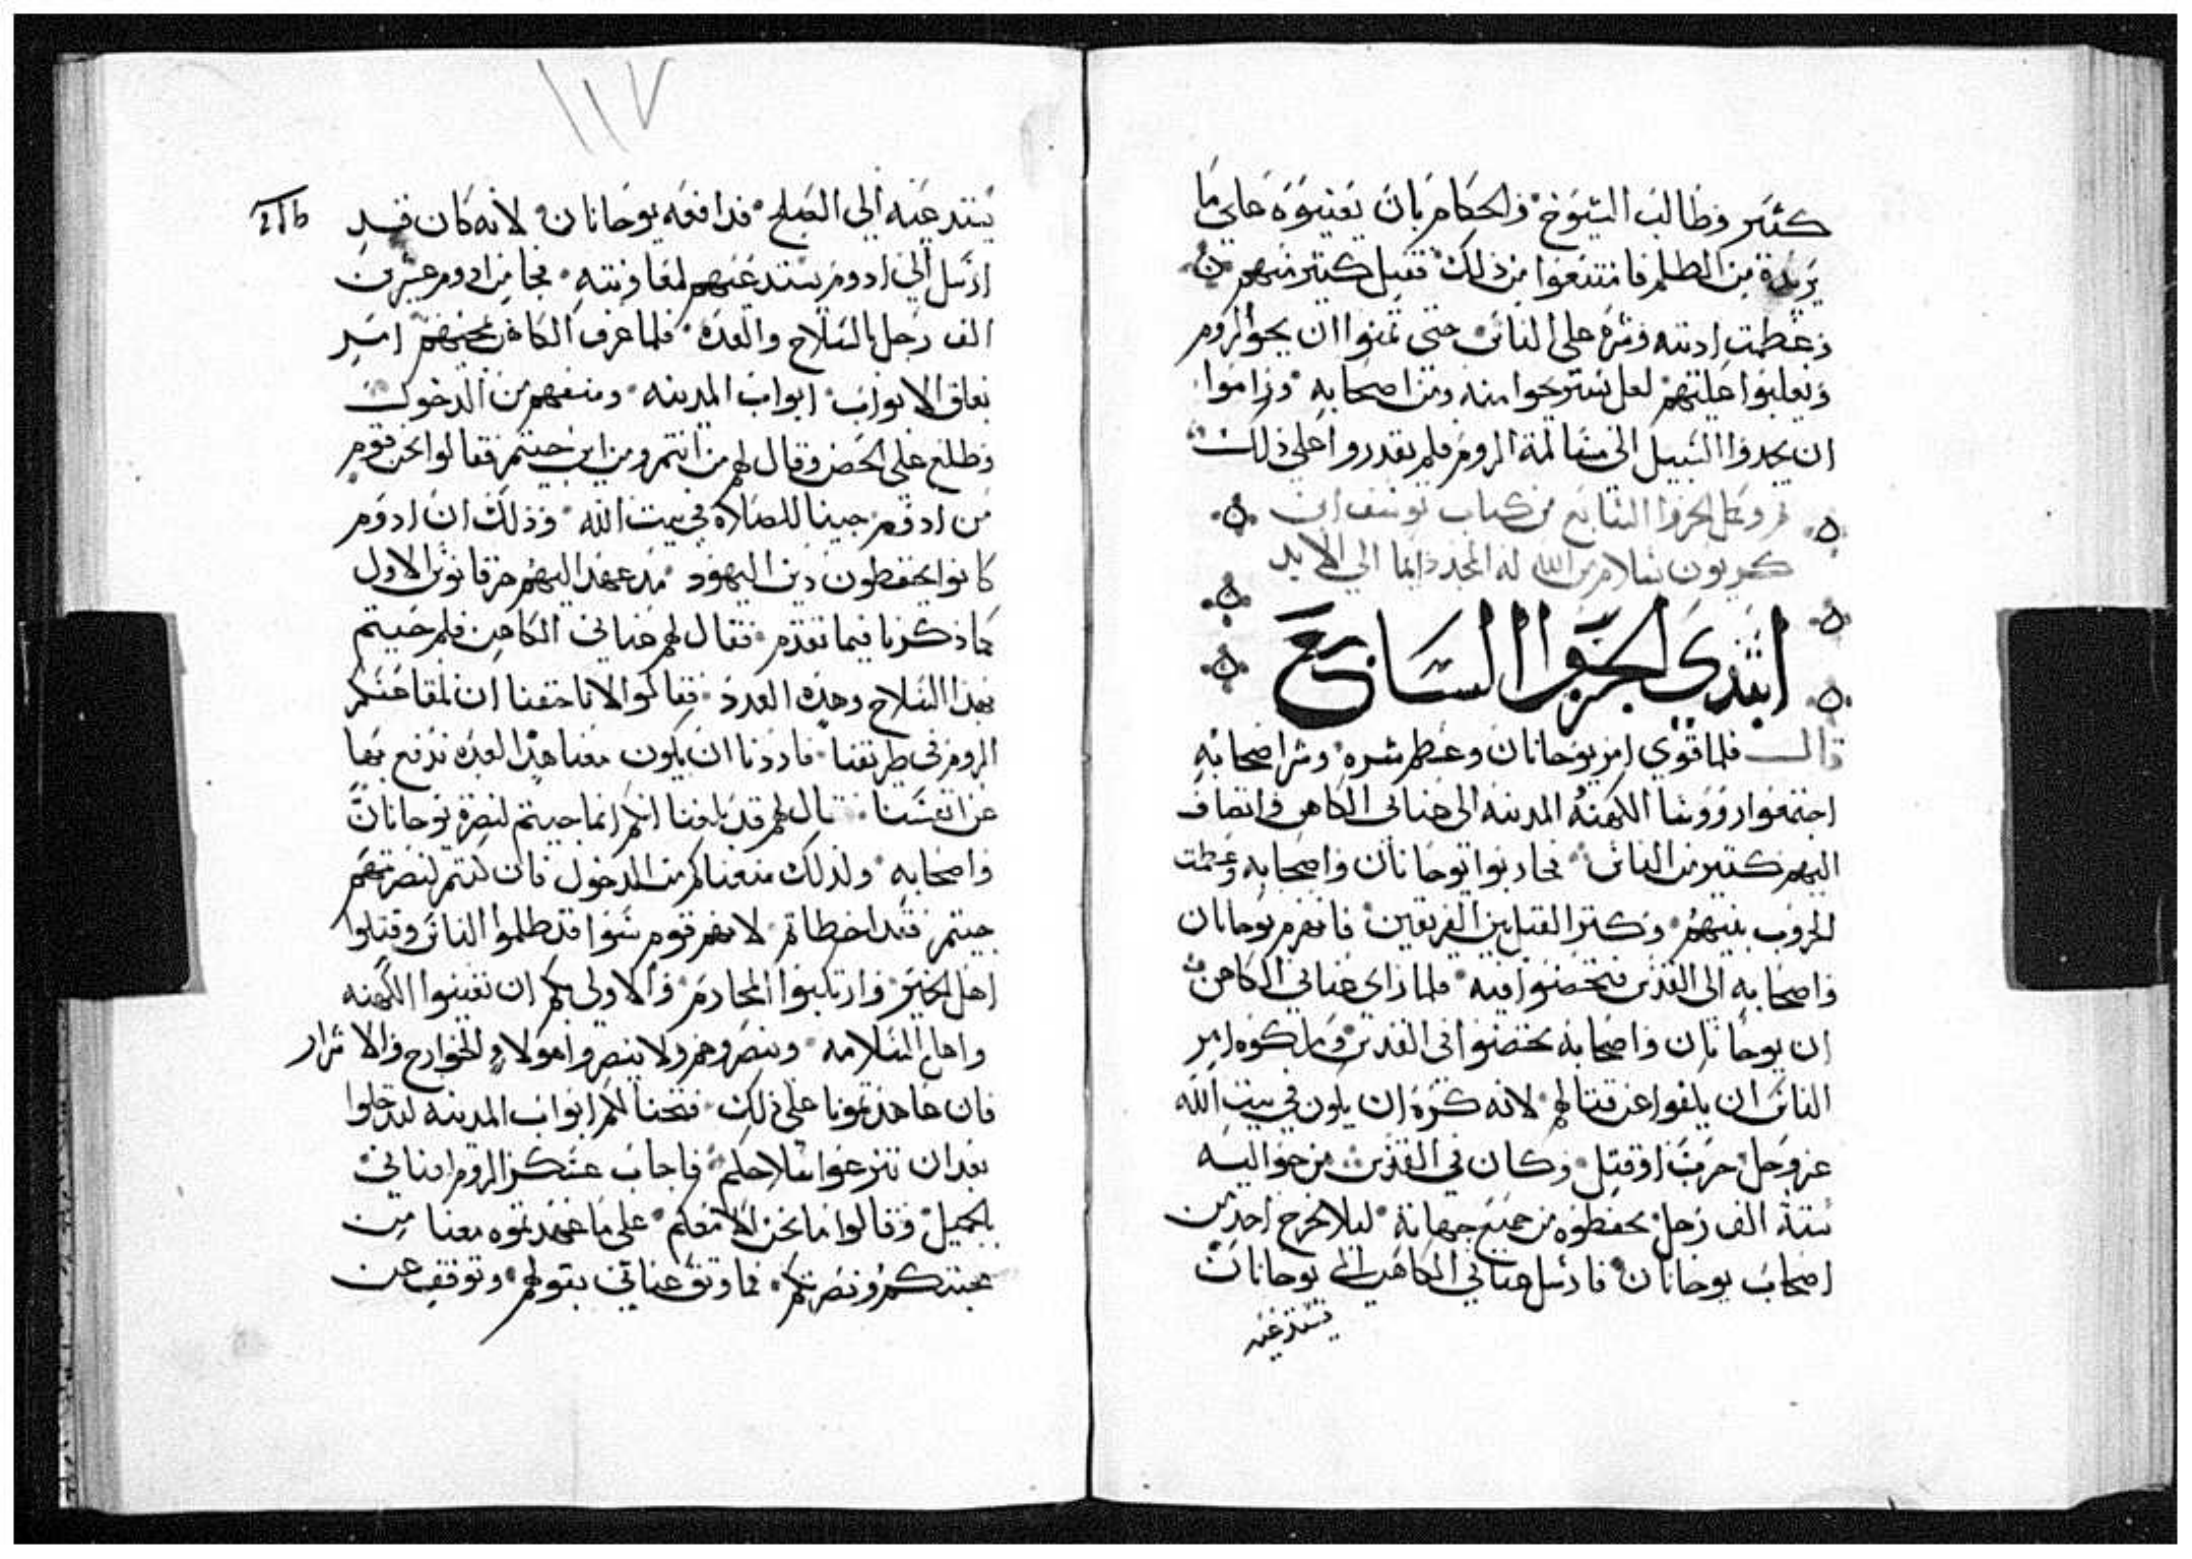 كثير وطالب الشيوخ والحكام بان يعينوه علي ما
يريده من الظلم فامتنعوا من ذلك فقتل كثير منهم
وعظمت اديته وشره علي الناس حتي تمنوا ان يجوا الروم
ويغلبوا عليهم لعل يستريحوا منه ومن اصحابه وراموا
ان يجدوا السبيل الي مسالمة الروم فلم يقدروا علي ذلك
الجزوا السابع من كتاب يوسف ابن
كريون بسلام من الله له المجد دايما الي الابد
ابتدي الجزوا السابع
قال فلما قوي امر يوحانان وعظم شره وشر اصحابه
اجتمعوا رووسا الكهنة المدينه الي عناني الكاهن وانضاف
اليهم كتير من الناس فحاربوا يوحانان واصحابه وعظمت
الحروب بينهم وكتر القتل بين الفريقين فانهزم يوحانان
واصحابه الي القدس فتحصنوا فيه فلما راي عناني الكاهن
ان يوحانان واصحابه تحصنوا في القدس وملكوه امر
الناس ان يكفوا عن قتالهم لانه كره ان يكون في بيت الله
عز وجل حرب او قتل وكان في القدس من حواليه
ستة الف رجل يحفظوه من جميع جهاته ليلا يخرج احد من
اصحاب يوحانان فارسل عناني الكاهن الي يوحانان
يستدعيه
١١٧
يستدعيه الي الصلح فدافعه يوحانان لانه كان قد
ارسل الي ادوم يستدعيهم لمعاونته فجا من ادوم عشرين
الف رجل بالسلاح والعده فلما عرف الكاهن بمجيهم امر
بغلق الابواب ابواب المدينه ومنعهم من الدخول
وطلع علي الحصن وقال لهم من انتم ومن اين جيتم فقالوا نحن قوم
من ادوم جينا للصلاه في بيت الله وذلك ان ادوم
كانوا يحفظون دين اليهود مند عهد اليهم هرقانوس الاول
كما ذكرنا فيما تقدم فقال لهم عناني الكاهن فلم جيتم
بهذا السلاح وهذه العدد فقالوا لانا خفنا ان يلقا عسكر
الروم في طريقنا فاردنا ان يكون معنا هذا العده ندفع بها
عن انفسنا قال لهم قد بلغنا انكم انما جيتم لنصرة يوحانان
واصحابه ولذلك منعناكم من الدخول فان كنتم لنصرتهم
جيتم فقد اخطاتم لانهم قوم سوا قد ظلموا الناس وقتلوا
اهل الخير وارتكبوا المحارم والاولي بكم ان تعينوا الكهنه
واهل السلامه وتنصروهم ولا ينصروا هولاء الخوارج والاشرار
فان عاهدتمونا علي ذلك فتحنا لكم ابواب المدينه لتدخلوا
بعد ان تنزعوا سلاحكم فاجاب عسكر الروم لعناني
بالجميل وقالوا ما نحن الا معكم علي ما عهدتوه معنا من
محبتكم ونصرتكم فما وثق عناني بقولهم وتوقف عن